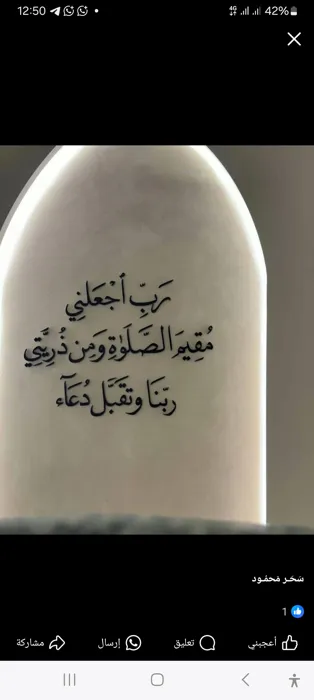 12:50
4G
42%
رَبِّ ٱجْعَلنِي
مُقِيمَ الصَّلَوٰةِ وَمِن ذُرِيَّتِي
رَبَّنَا وَتَقَبَّل دُعَآء
سحر محمود
1
أعجبني
تعليق
إرسال
مشاركة